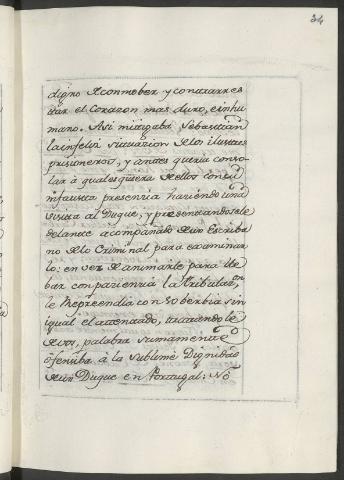 34
digno de conmober y contrarres
tar el Corazon mas duro, e inhu
mano. Asi mitigaba Sebastian
la infeliz situazion de los ilustres
prisioneros, y antes queria conso
lar à qualesquiera de ellos con su
infausta presenzia haziendo una
visita al Duque, y presentandosele
delante acompañado de un Escriba
no de lo Criminal para examinar
lo: en vez de animarle para lle
bar con pazienzia la tribulaz.on
le Reprendia con soberbia sin
igual el atentado, tratandole
de vos, palabra sumamente
ofensiba à la sublime Dignidad
de un Duque en Portugal: No